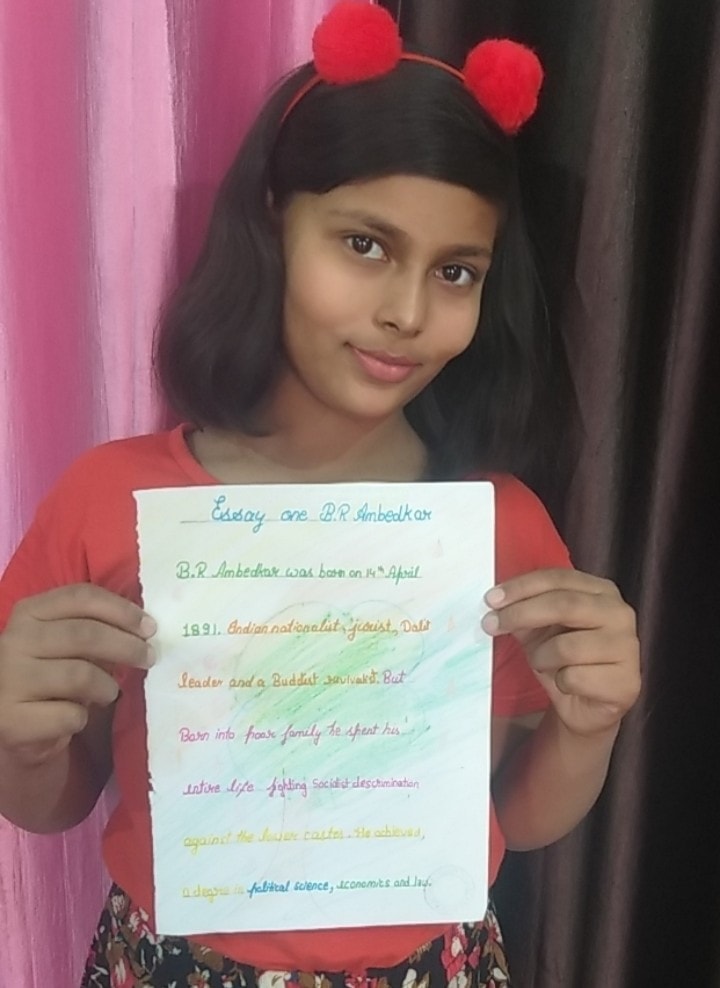 Essay one B.R Ambedkar
B.R Ambedkar was born on 14th April
1891. Indian nationalist, jurist, Dalit
leader and a Buddist revivalist. But
Born into poor family he spent his
entire life fighting Socialist descrimination
against the lower castes. He achieved,
a degree in political science, economics and law.